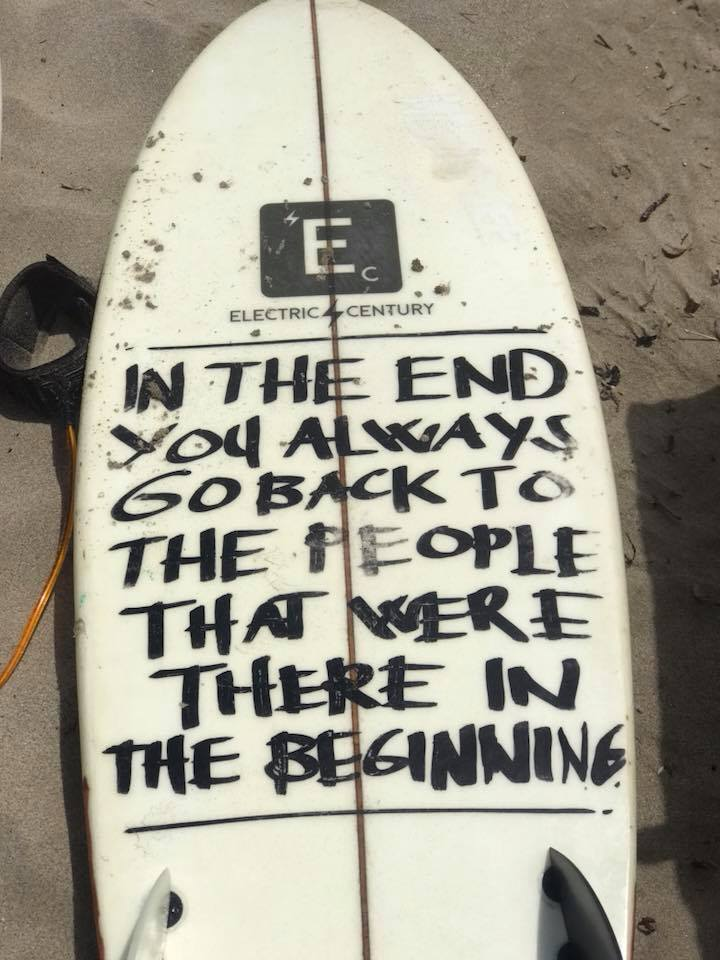 E
C
ELECTRIC CENTURY
IN THE END
YOU ALWAYS
GO BACK TO
THE PEOPLE
THAT WERE
THERE IN
THE BEGINNING